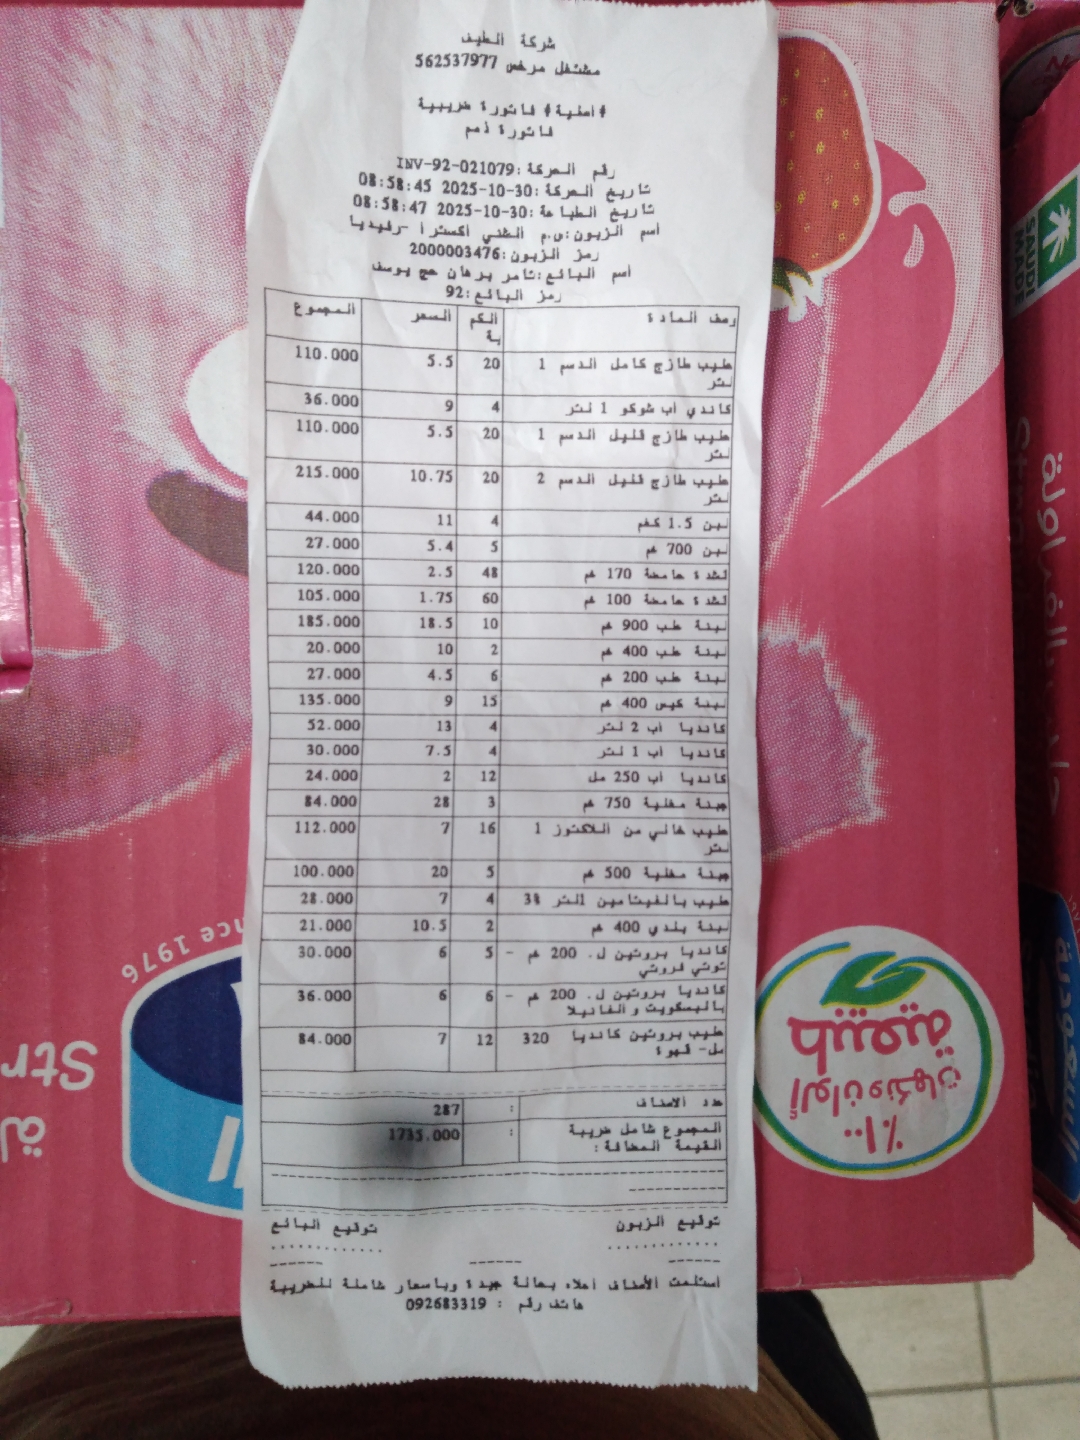 شركة الطيف
مشتغل مرخص 562537977
# أصلية # فاتورة ضريبية
فاتورة ذمم
رقم الحركة :INV-92-021079
تاريخ الحركة :30-10-2025 08:58:45
تاريخ الطباعة :30-10-2025 08:58:47
اسم الزبون :س.م الشني أكسترا -رفيديا
رمز الزبون :2000003476
اسم البائع :تامر برهان حج يوسف
رمز البائع :92
وصف المادة الكم السعر المجموع
ية
حليب طازج كامل الدسم 1 20 5.5 110.000
لتر
كاندي أب شوكو 1 لتر 4 9 36.000
حليب طازج قليل الدسم 1 20 5.5 110.000
لتر
حليب طازج قليل الدسم 2 20 10.75 215.000
لتر
لبن 1.5 كغم 4 11 44.000
لبن 700 غم 5 5.4 27.000
قشدة حامضة 170 غم 48 2.5 120.000
قشدة حامضة 100 غم 60 1.75 105.000
لبنة علب 900 غم 10 18.5 185.000
لبنة علب 400 غم 2 10 20.000
لبنة علب 200 غم 6 4.5 27.000
لبنة كيس 400 غم 15 9 135.000
كانديا أب 2 لتر 4 13 52.000
كانديا أب 1 لتر 4 7.5 30.000
كانديا أب 250 مل 12 2 24.000
جبنة مغلية 750 غم 3 28 84.000
حليب خالي من اللاكتوز 1 16 7 112.000
لتر
جبنة مغلية 500 غم 5 20 100.000
حليب بالفيتامين 1لتر 3% 4 7 28.000
لبنة بلدي 400 غم 2 10.5 21.000
كانديا بروتين ل. 200 غم - 5 6 30.000
توتي فروتي
كانديا بروتين ل. 200 غم - 6 6 36.000
بالبسكويت والفانيلا
حليب بروتين كانديا 320 12 7 84.000
مل- قهوة
عدد الاصناف : 287
المجموع شامل ضريبة : 1735.000
القيمة المضافة :
توقيع الزبون توقيع البائع
استلمت الأصناف أعلاه بحالة جيدة وبأسعار شاملة للضريبة
هاتف رقم : 092683319
SAUDI
MADE
nce 1976
Str
لة
١٠٠٪
ألوان ونكهات
طبيعية
بالفراولة
السعودية